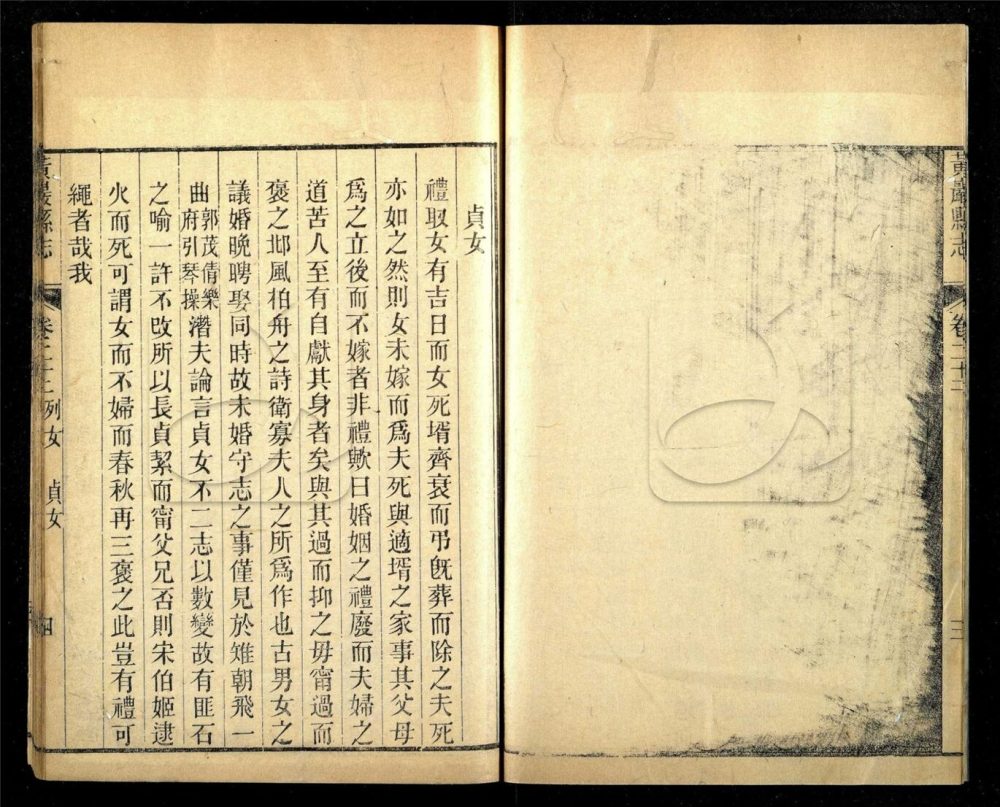 黃巖縣志
卷二十二
三
貞女
禮取女有吉日而女死壻齊衰而弔旣葬而除之夫死
亦如之然則女未嫁而爲夫死與適壻之家事其父母
爲之立後而不嫁者非禮歟曰婚姻之禮廢而夫婦之
道苦人至有自獻其身者矣與其過而抑之毋甯過而
褒之邶風柏舟之詩衛寡夫人之所爲作也古男女之
議婚晚聘娶同時故未婚守志之事僅見於雉朝飛一
曲郭茂倩樂府引琴操潛夫論言貞女不二志以數變故有匪石
之喻一許不改所以長貞絜而甯父兄否則宋伯姬逮
火而死可謂女而不婦而春秋再三褒之此豈有禮可
繩者哉我
黃巖縣志
卷二十二
列女
貞女
四